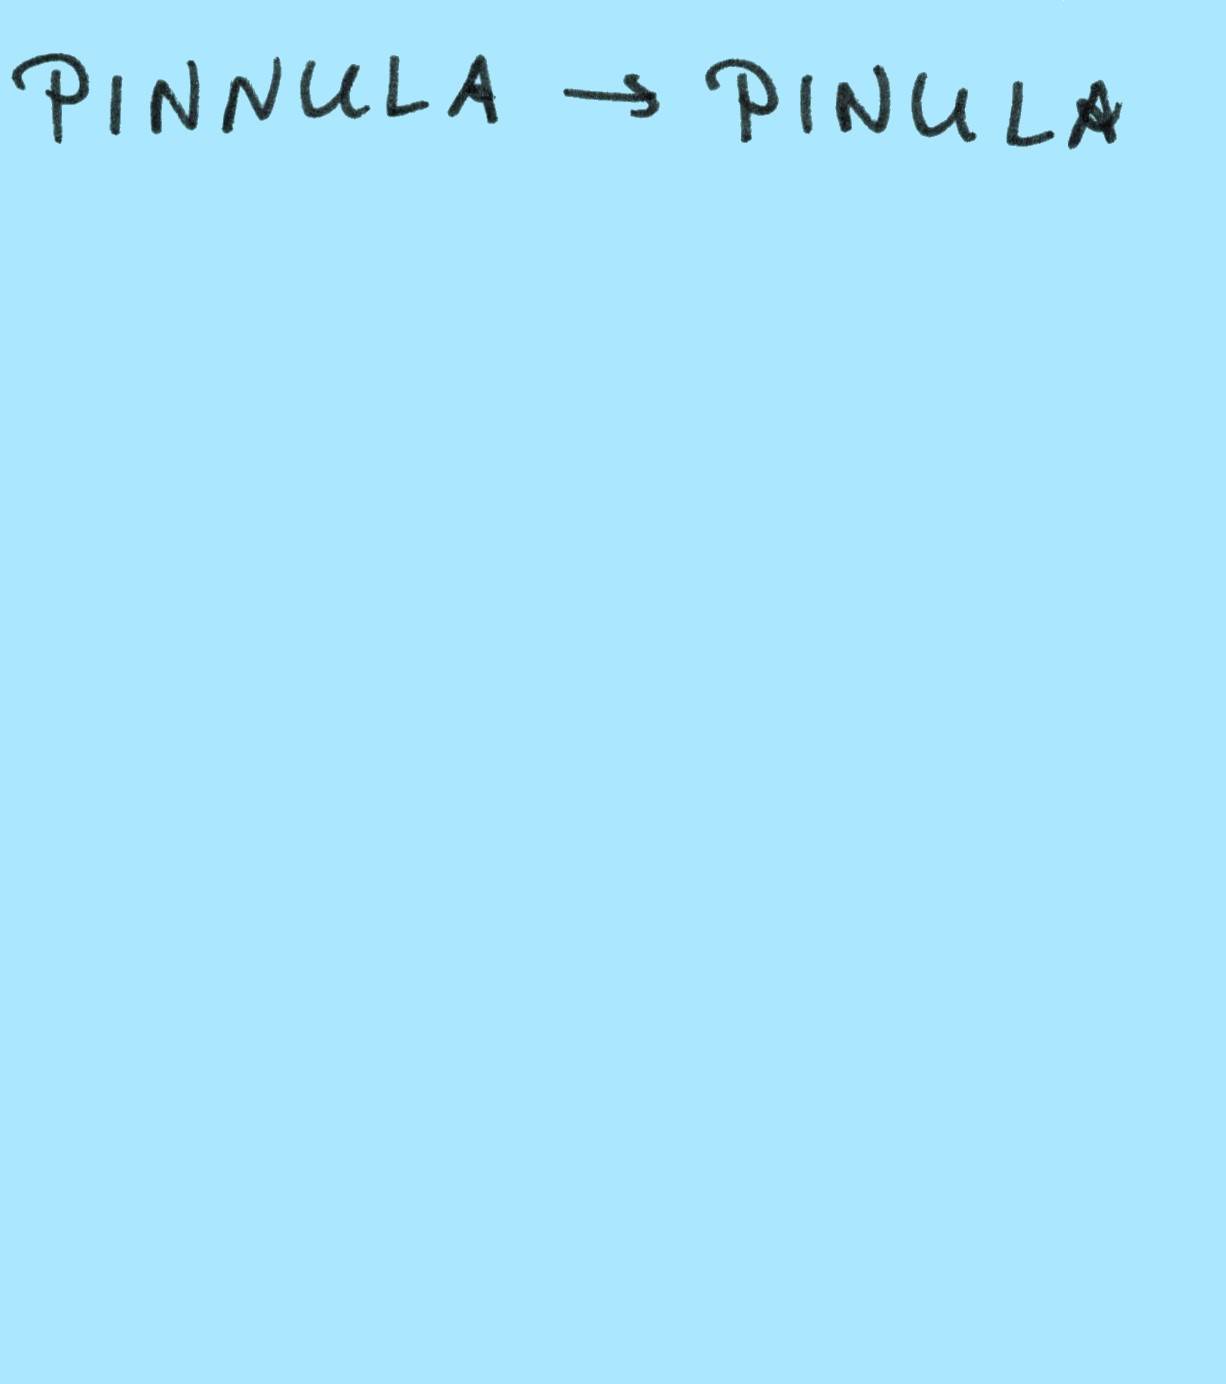 PINNULA → PINULA